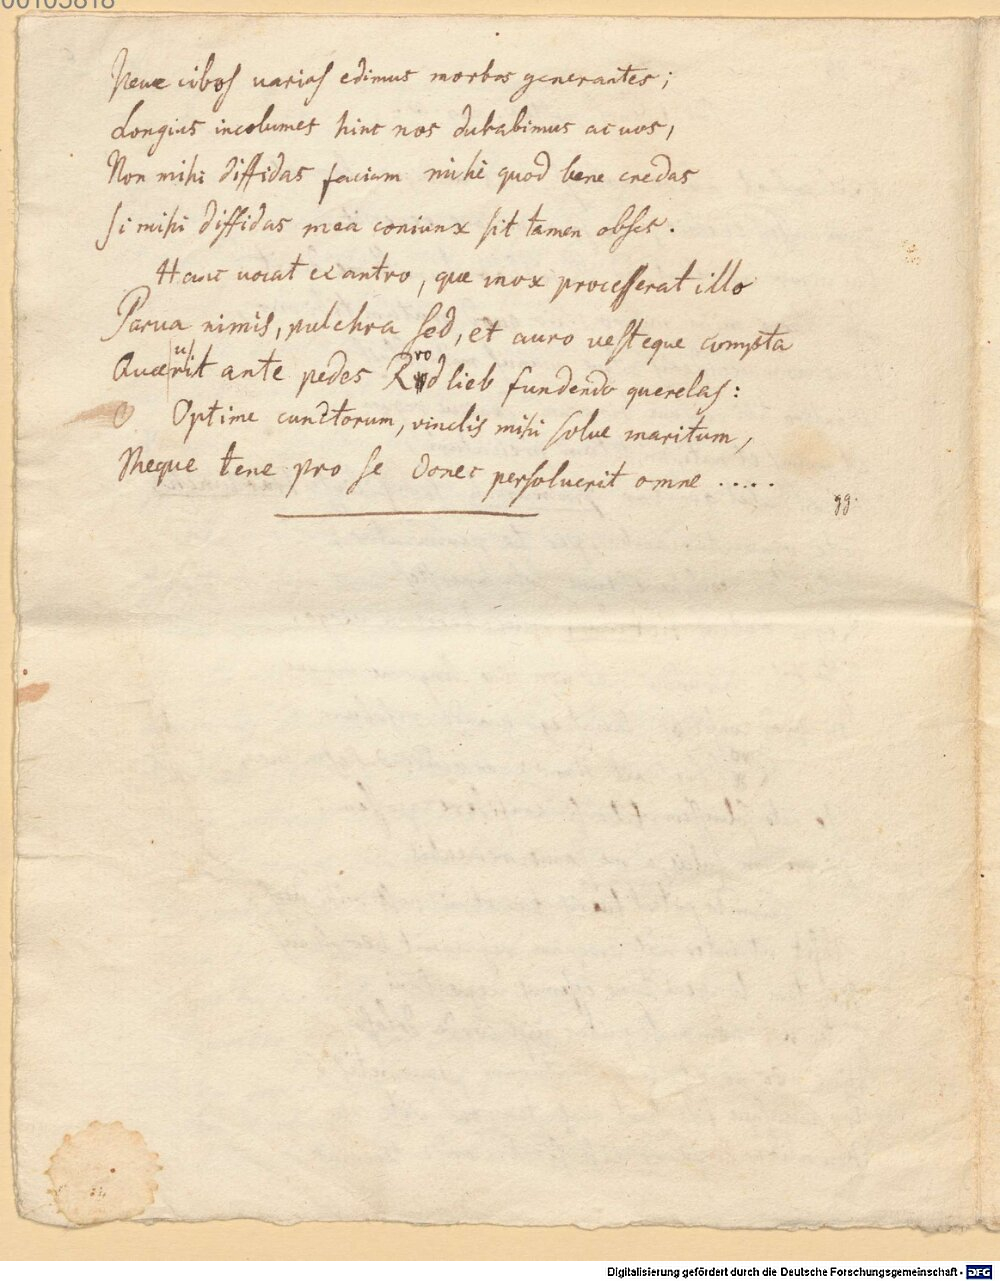 00103818
Neue cibos varias edimus morbos generantes;
Longius incolumes hinc nos durabimus ac uos,
Non mihi diffidas faciam mihi quod bene credas
Si mihi diffidas mea coniunx sit tamen obses.
Hanc uocat ex antro, que mox processerat illo
Parua nimis, pulchra sed, et auro uesteque compta
ro
Quae|ru|it ante pedes Rudlieb fundendo querelas:
O Optime cunctorum, vinclis mihi solue maritum,
Meque tene pro se donec persoluerit omne .....
gg.
Digitalisierung gefördert durch die Deutsche Forschungsgemeinschaft - DFG